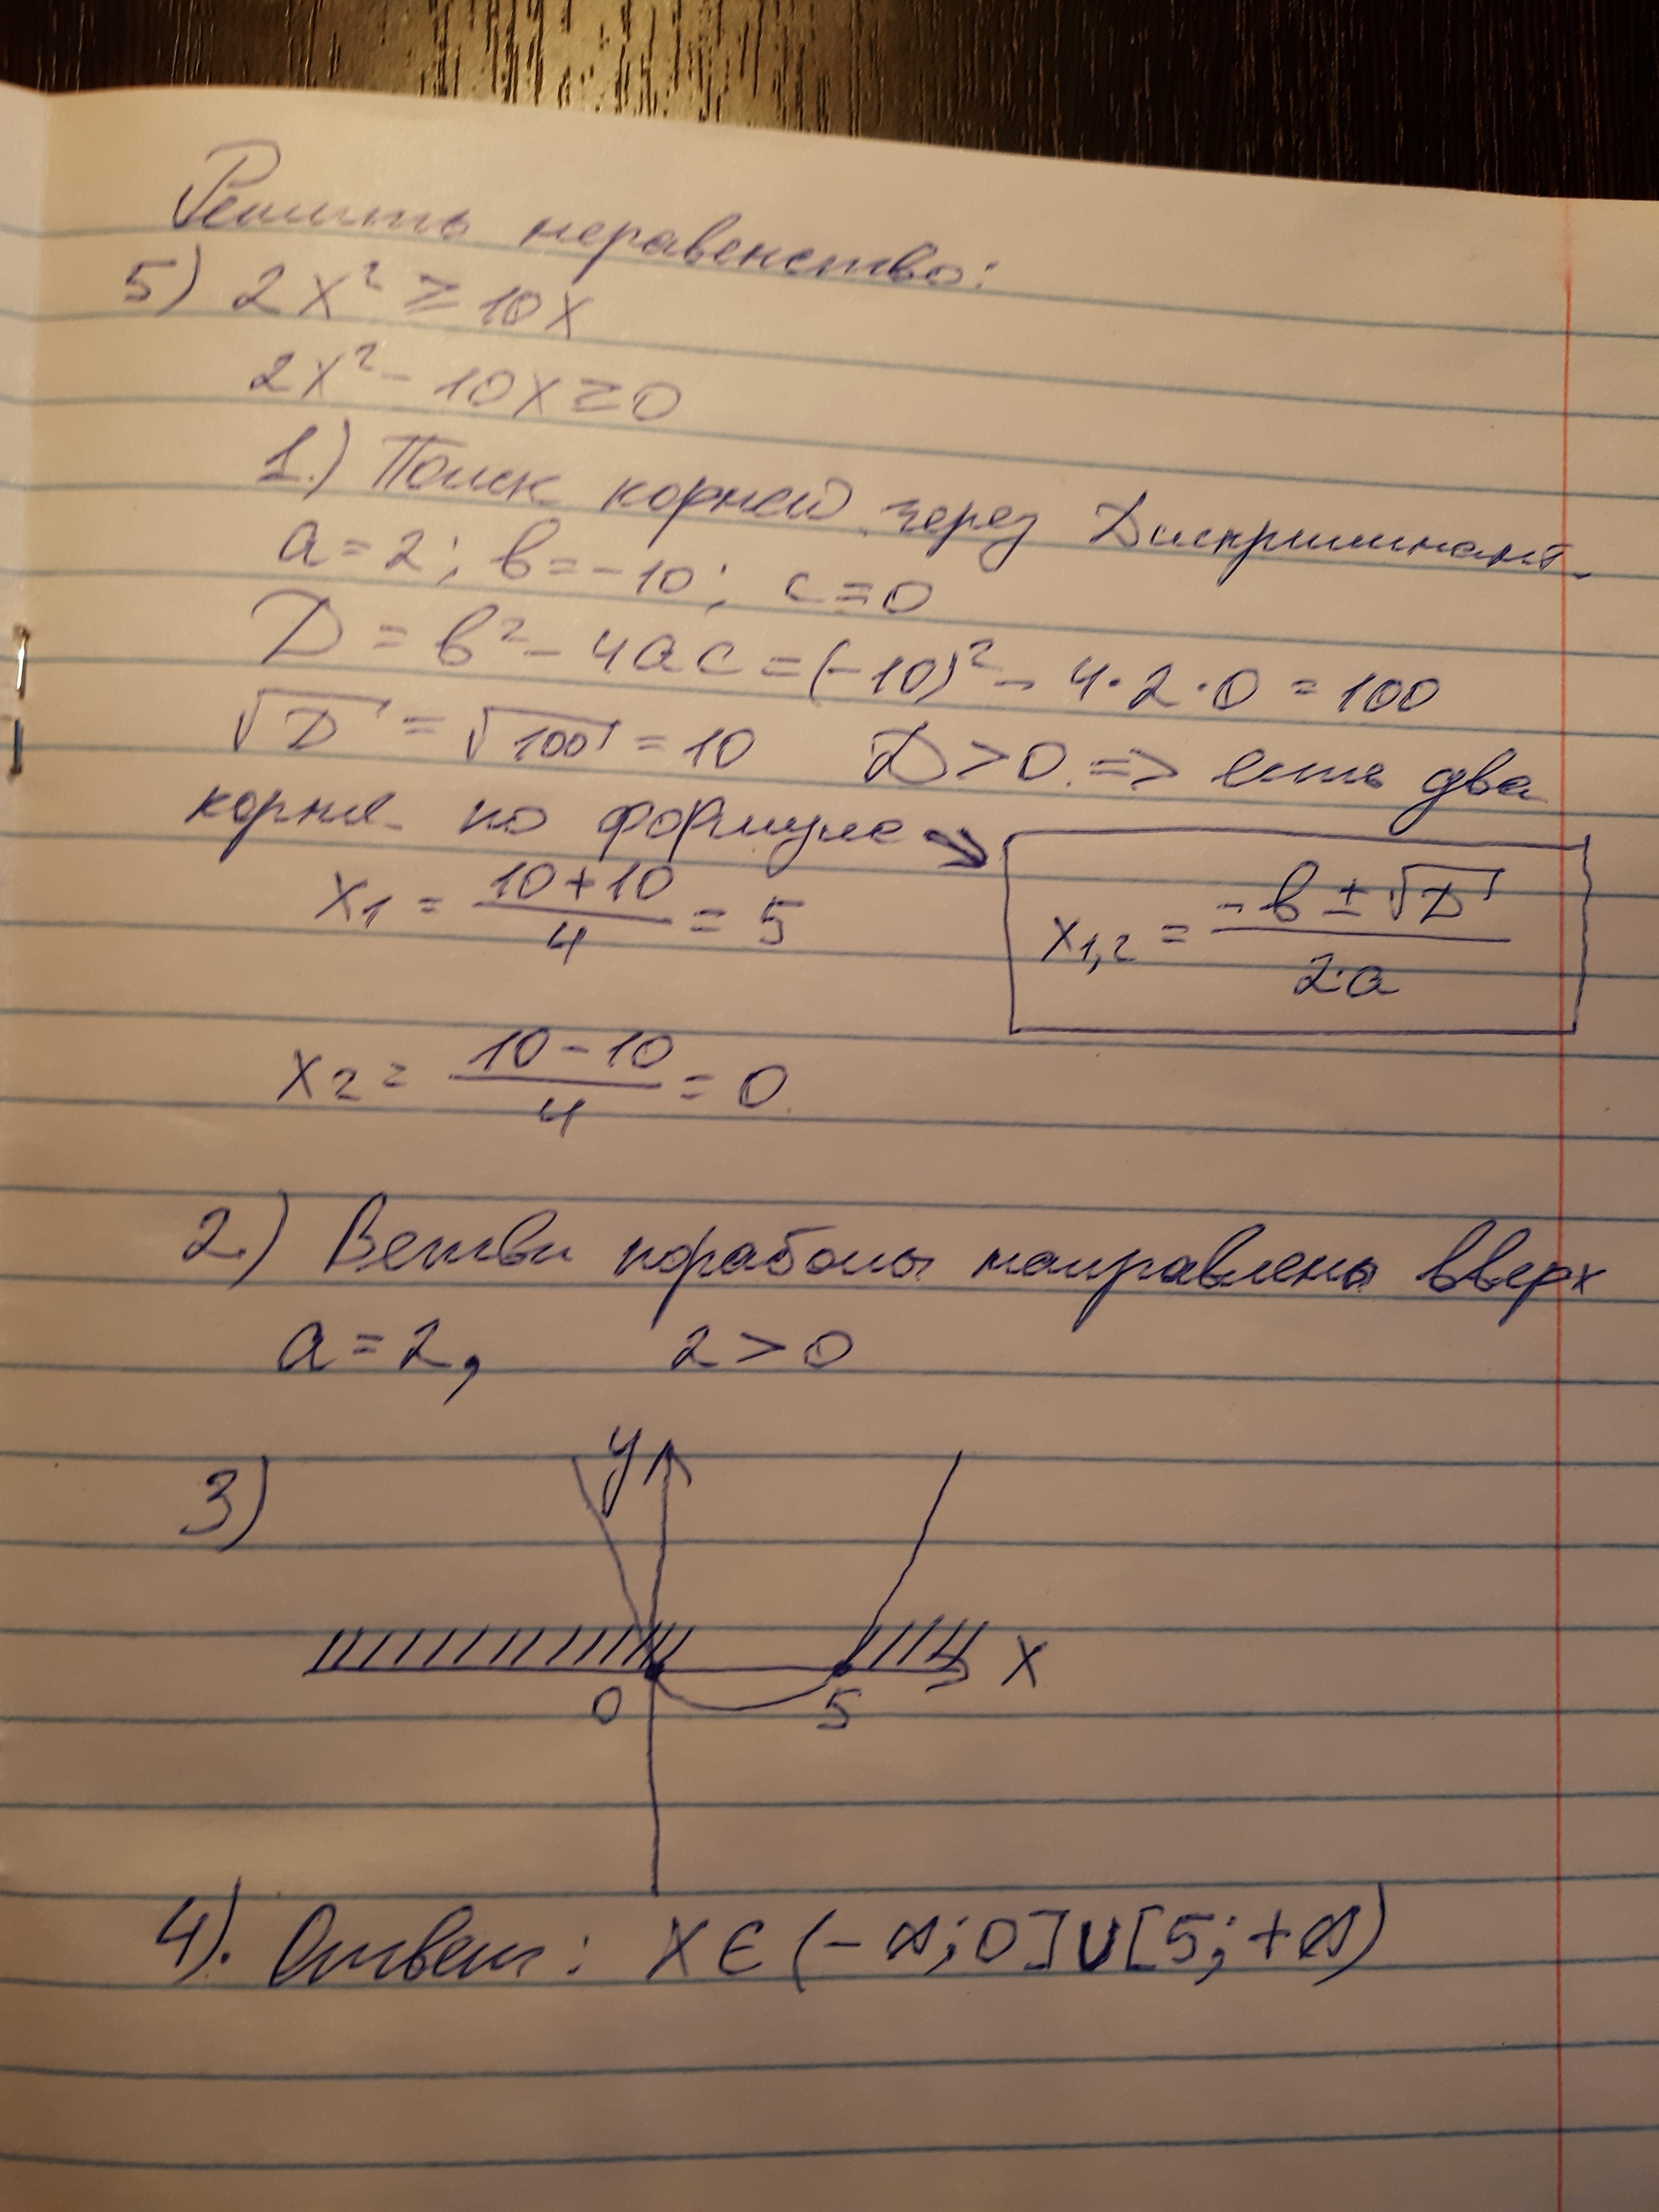 Решить неравенство:
5) 2x² ≥ 10x
2x² - 10x ≥ 0
1.) Поиск корней через Дискриминант.
a = 2; b = -10; c = 0
D = b² - 4ac = (-10)² - 4·2·0 = 100
√D = √100 = 10 D > 0. => есть два
корня по формуле ↘
x₁ = (10+10)/4 = 5
x₁,₂ = (-b ± √D)/(2·a)
x₂ = (10-10)/4 = 0.
2.) Ветви параболы направлены вверх
a = 2, 2 > 0
3)
y
x
0 5
4). Ответ: x ∈ (-∞; 0] ∪ [5; +∞)